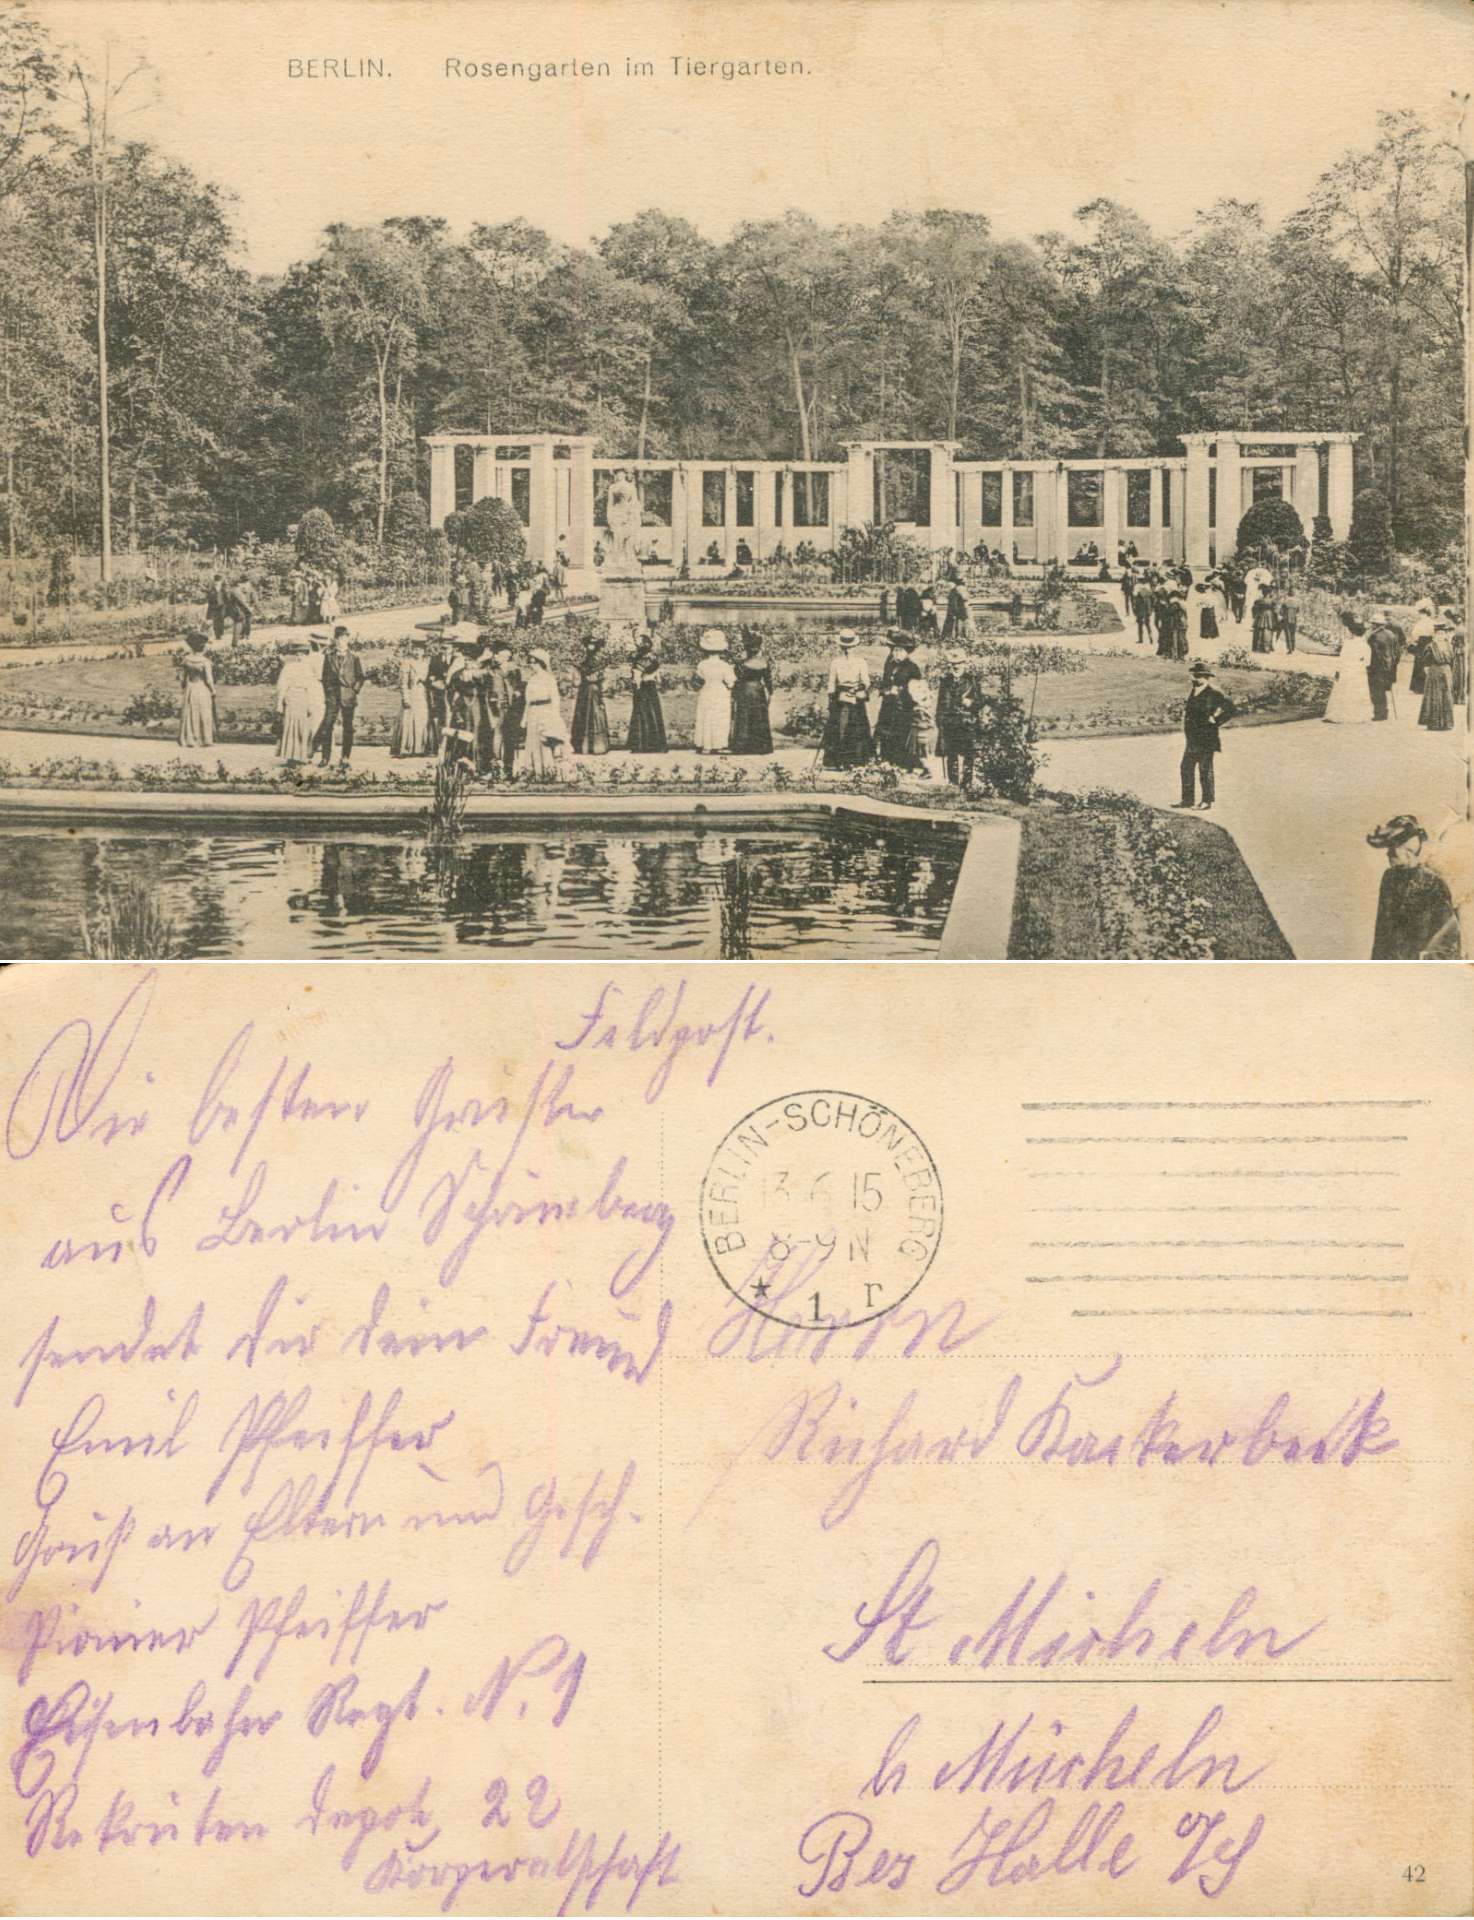 BERLIN. Rosengarten im Tiergarten.
Feldpost.
Die besten Grüße
aus Berlin Schöneberg
sendet dir dein Freund
Emil Pfeiffer
Gruß an Eltern und Gesch.
Pionier Pfeiffer
Eisenbahn Regt. N. 1
Rekruten depot, 22
Korporalschaft
BERLIN-SCHÖNEBERG
13 6 15
8-9 N
* 1 r
Herrn
Richard Kackerbeck
St Micheln
b Mücheln
Bez Halle a/S
42